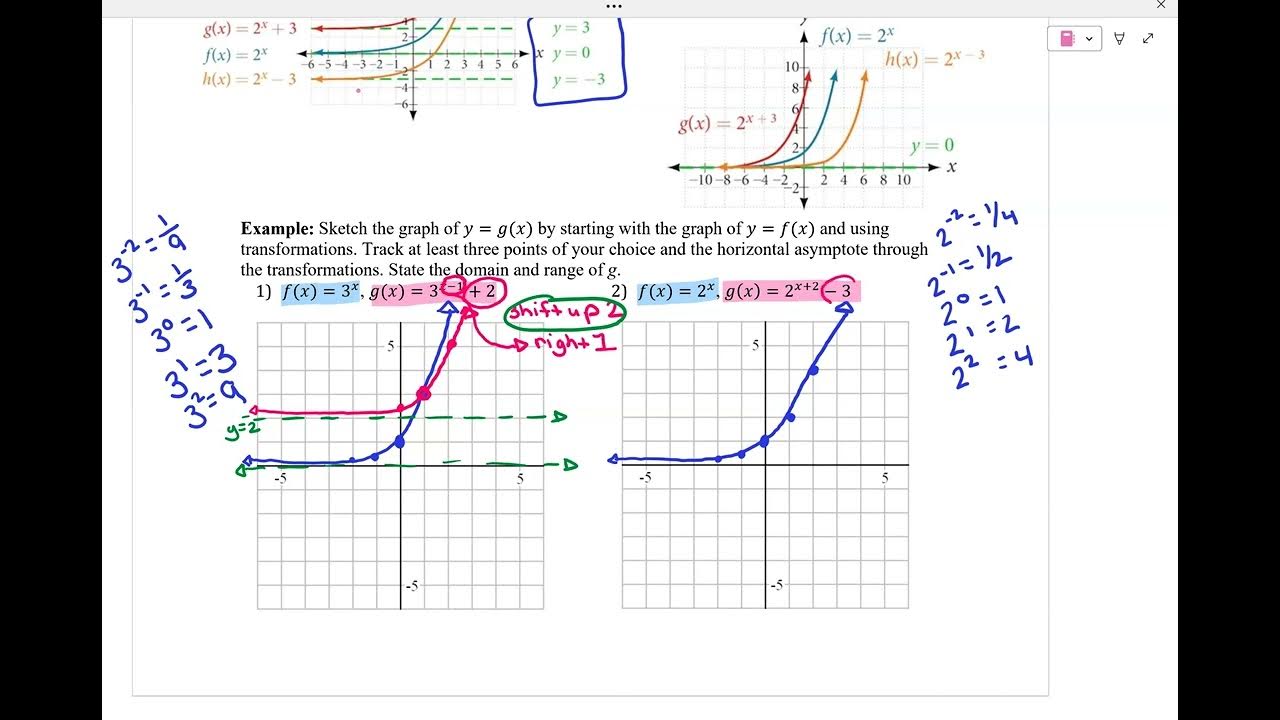 g(x) = 2ˣ + 3
f(x) = 2ˣ
h(x) = 2ˣ − 3
2
-6 -5 -4 -3 -2 -1 1 2 3 4 5 6 x
-2
-4
-6
y = 3
y = 0
y = −3
y
f(x) = 2ˣ
h(x) = 2ˣ ⁻ ³
g(x) = 2ˣ ⁺ ³
y = 0
10
8
6
4
2
-10 -8 -6 -4 -2 2 4 6 8 10 x
-2
Example: Sketch the graph of y = g(x) by starting with the graph of y = f(x) and using
transformations. Track at least three points of your choice and the horizontal asymptote through
the transformations. State the domain and range of g.
1) f(x) = 3ˣ, g(x) = 3ˣ⁻¹ + 2
2) f(x) = 2ˣ, g(x) = 2ˣ⁺² − 3
3⁻² = 1/9
3⁻¹ = 1/3
3⁰ = 1
3¹ = 3
3² = 9
shift up 2
right 1
y=2
5
-5 5
-5
5
-5 5
-5
2⁻² = 1/4
2⁻¹ = 1/2
2⁰ = 1
2¹ = 2
2² = 4